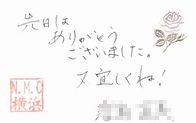 先日は
ありがとう
ございました。
又宜しくね!
N.M.C
横浜